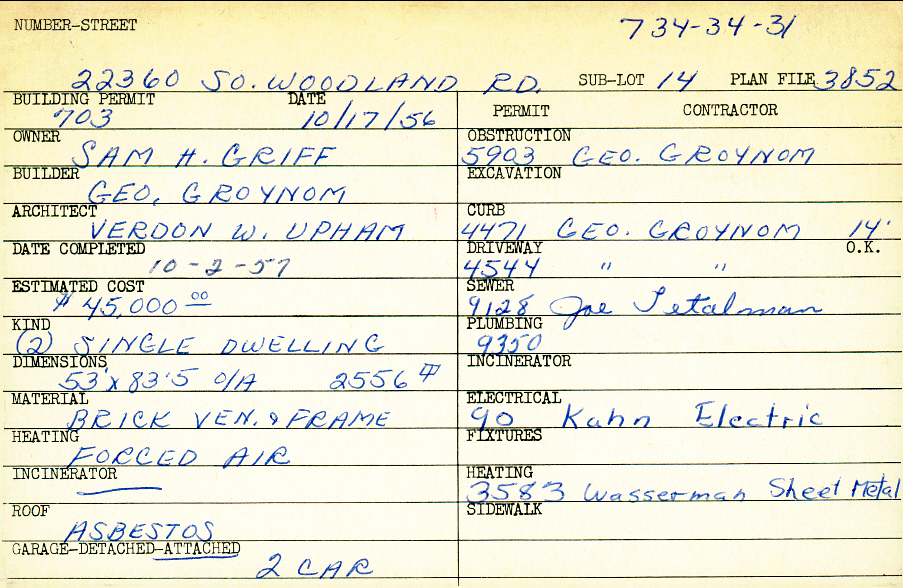 NUMBER-STREET 734-34-31
22360 SO. WOODLAND RD. SUB-LOT 14 PLAN FILE 3852
BUILDING PERMIT DATE PERMIT CONTRACTOR
703 10/17/56
OWNER OBSTRUCTION
SAM H. GRIFF 5903 GEO. GROYNOM
BUILDER EXCAVATION
GEO. GROYNOM
ARCHITECT CURB
VERDON W. UPHAM 4471 GEO. GROYNOM 14'
DATE COMPLETED DRIVEWAY O.K.
10-2-57 4544 " "
ESTIMATED COST SEWER
$ 45,000 00 9128 Joe
KIND PLUMBING
(2) SINGLE DWELLING 9350
DIMENSIONS INCINERATOR
53' x 83'5 O/A 2556
MATERIAL ELECTRICAL
BRICK VEN. & FRAME 90 Kahn Electric
HEATING FIXTURES
FORCED AIR
INCINERATOR HEATING
3583 Wasserman Sheet Metal
ROOF SIDEWALK
ASBESTOS
GARAGE-DETACHED-ATTACHED
2 CAR